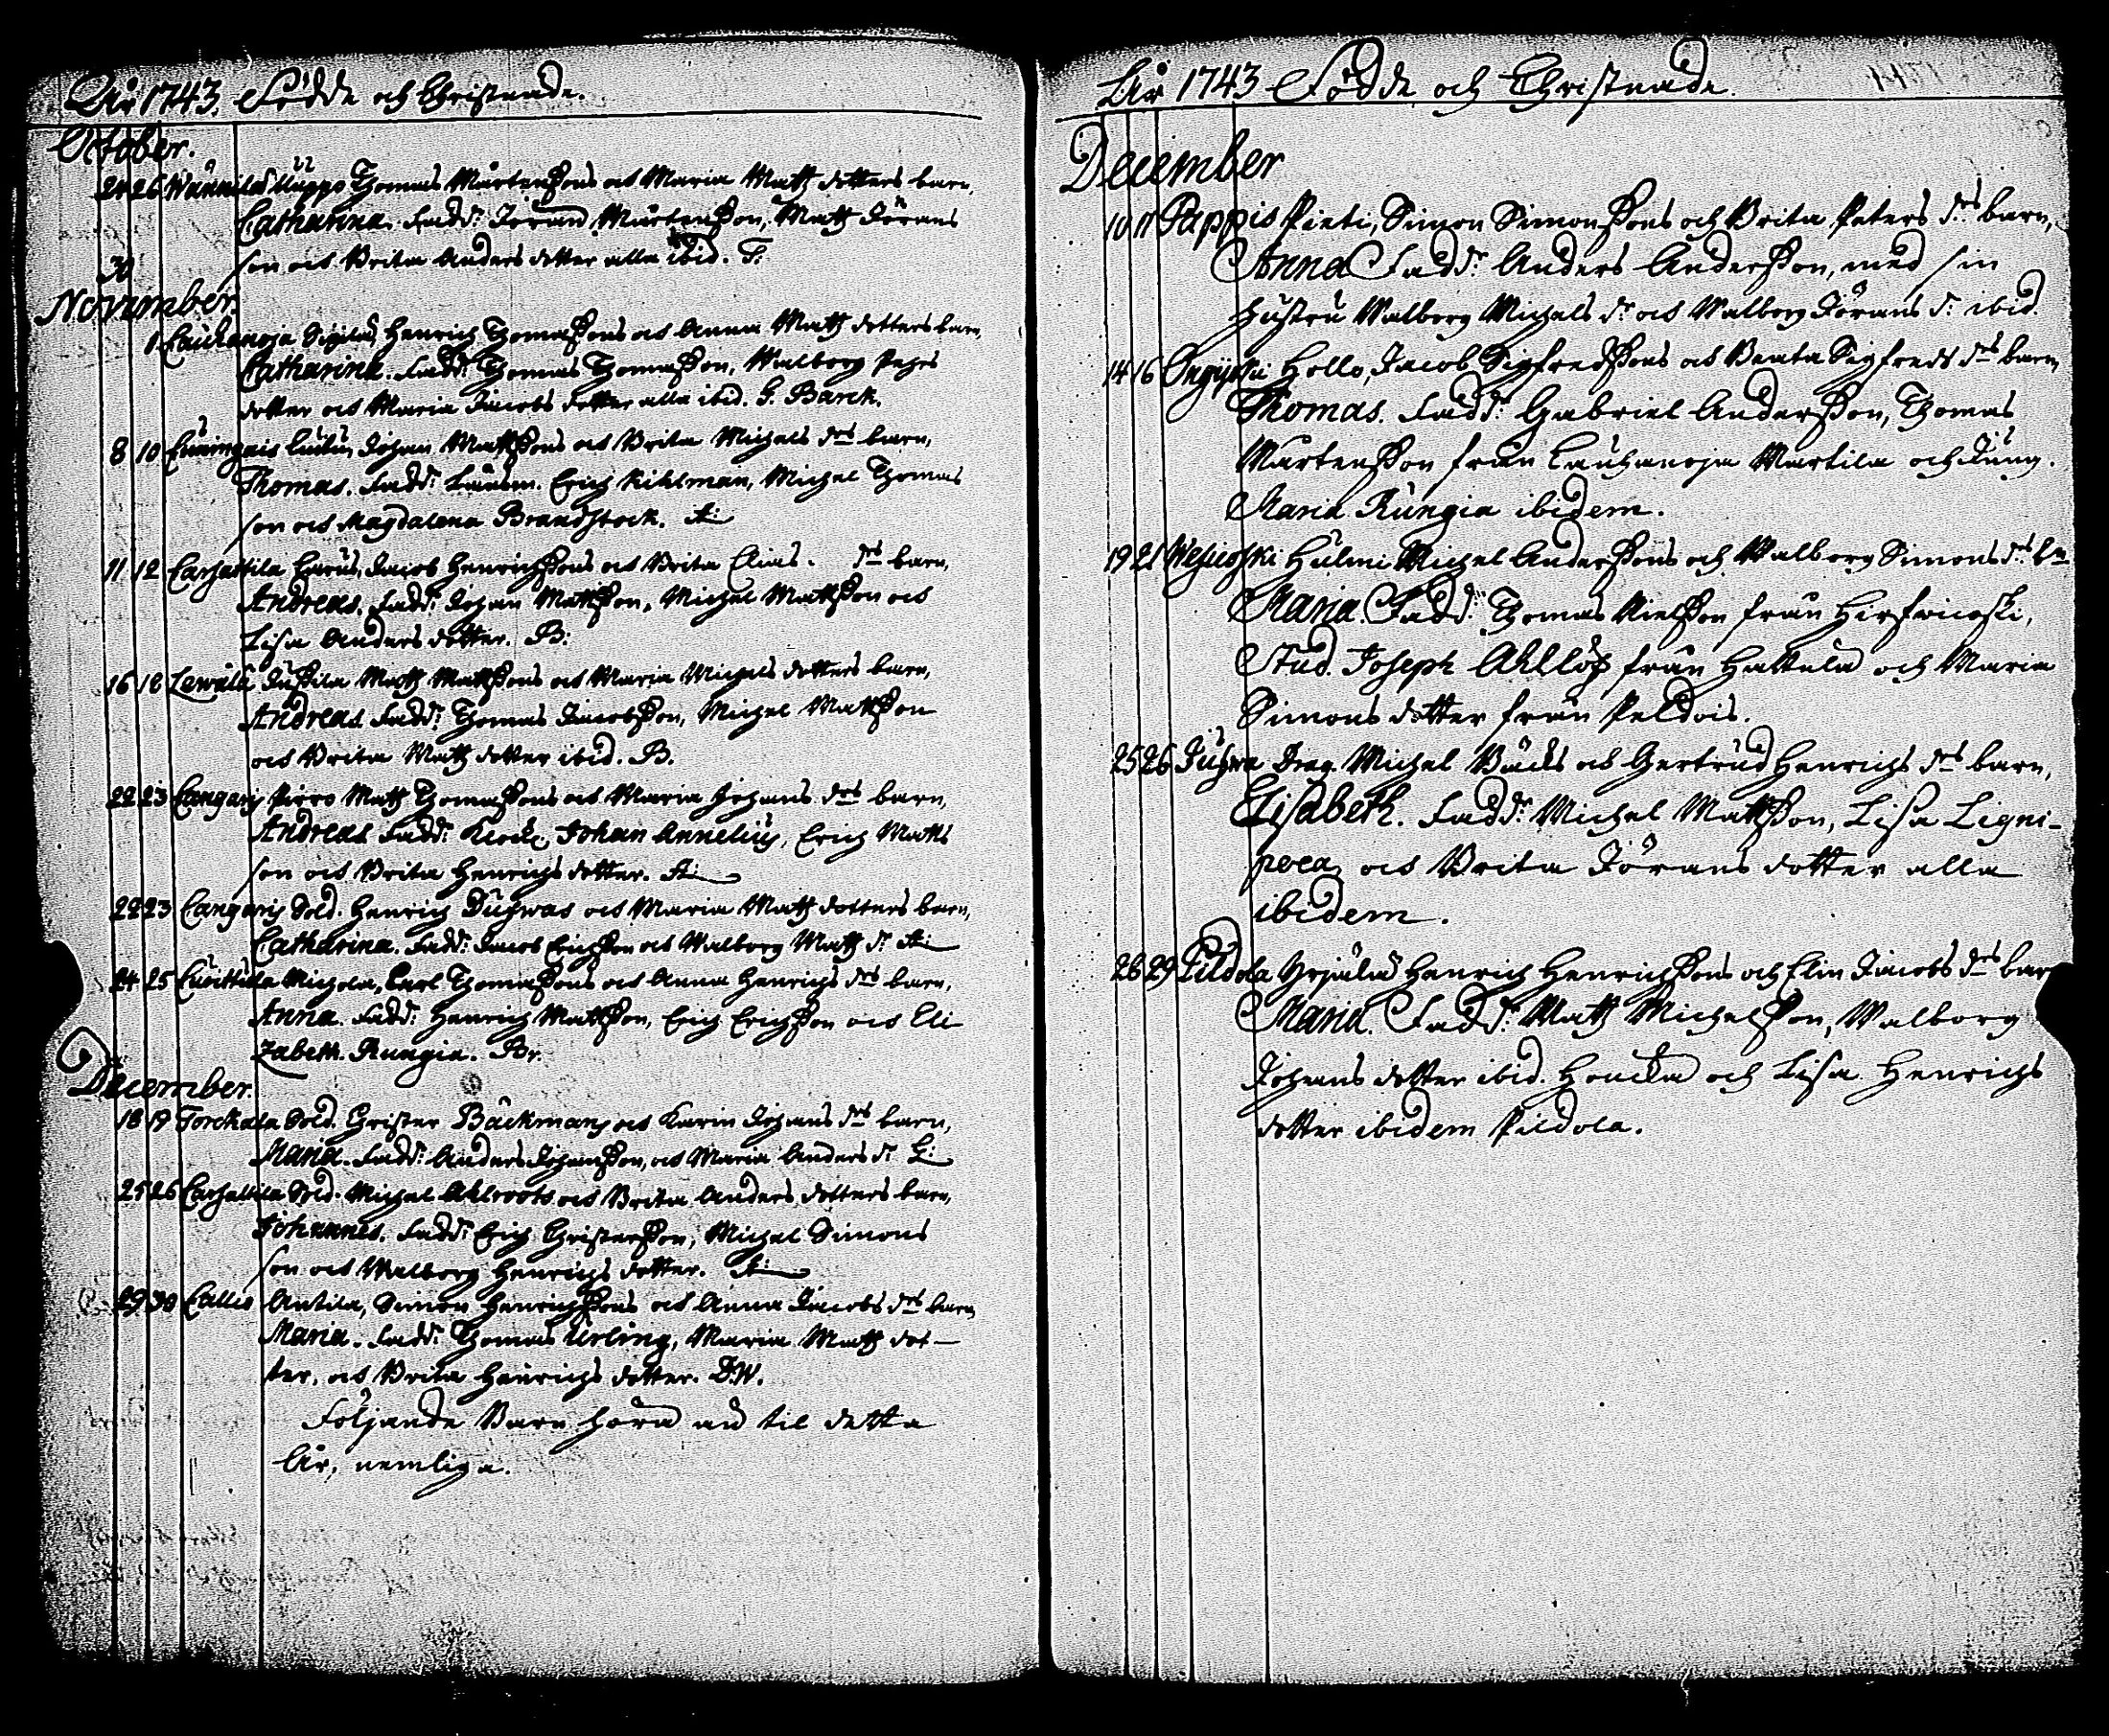 Åhr 1743. Födde och Christnade.
October.
24 26 Wännilä Uuppo Thomas Mårtenssons och Maria Matts dotters barn,
Catharina. Fadd: Jöran Mårtensson, Matts Jörans
son och Brita Anders dotter alla ibid. F:
30
November.
1 Lauhanoja Sipilä, Henrich Thomassons och Anna Matts dotters barn,
Catharina. Fadd: Thomas Thomasson, Walborg
dotter och Maria Jacobs dotter alla ibid. G. Barck.
8 10 Johan Mattssons och Brita Michels drs barn,
Thomas. Fadd: Länsm. Erich Kihlman, Michel Thomas
son och Magdalena Brandstock. A:
11 12 Carhattila Jacob Henrichssons och Brita Elias. drs barn,
Andreas. Fadd: Johan Mattsson, Michel Mattsson och
Lisa Anders dotter. B:
16 18 Lewälä Jussila Matts Mattssons och Maria Michels dotters barn,
Andreas. Fadd: Thomas Jacobsson, Michel Mattsson
och Brita Matts dotter ibid. B.
22 23 Cangari Pirro Matts Thomassons och Maria Johans drs barn,
Andreas. Fadd: Klock. Johan Annelius, Erich Matts
son och Brita Henrichs dotter. A:
22 23 Cangari Sold. Henrich Dufwas och Maria Matts dotters barn,
Catharina. Fadd: Jacob Erichsson och Walborg Matts dr A:
24 25 Michola, Carl Thomassons och Anna Henrichs drs barn,
Anna. Fadd: Henrich Mattsson, Erich Erichsson och Eli
zabeth Rungia. Br.
December.
18 19 Torckala Sold. Christer Bäckmans och Karin Johans drs barn,
Maria. Fadd: Anders Johansson, och Maria Anders dr G:
25 26 Carhattila Sold. Michel Ahlroots och Brita Anders dotters barn,
Johannes. Fadd: Erich Christersson, Michel Simons
son och Walborg Henrichs dotter. A:
29 30 Callis Antila, Simon Henrichssons och Anna Jacobs drs barn,
Maria. Fadd: Thomas Ürling, Maria Matts dot-
ter, och Brita Henrichs dotter. D.W.
Följande Barn höra än til detta
Åhr, nemliga.
Åhr 1743 Födde och Christnade.
December
10 11 Pappis Pieti, Simon Simonssons och Brita Peters drs barn,
Anna Fadd: Anders Andersson, med sin
hustru Walborg Michels dr och Walborg Jörans dr ibid.
14 16 Hollo, Jacob Sigfredssons och Beata Sigfreds drs barn,
Thomas. Fadd: Gabriel Andersson, Thomas
Mårtensson från Lauhanoja Martila och Jung.
Maria Rungia ibidem.
19 21 Wesikoski Hulmi Michel Anderssons och Walborg Simons drs bn
Maria. Fadd: Thomas Nielsson från Hirfwikoski,
Stud. Joseph Ahllöf från Hattula och Maria
Simons dotter från Peldois.
25 26 Juhwa Drag. Michel Bäcks och Gertrud Henrichs drs barn,
Elisabeth. Fadd: Michel Mattsson, Lisa Ligni-
poea, och Brita Jörans dotter alla
ibidem.
28 29 Pildola Yrjälä Henrich Henrichssons och Elin Jacobs drs bar
Maria. Fadd: Matts Michelsson, Walborg
Johans dotter ibid. Houcka och Lisa Henrichs
dotter ibidem Pildola.